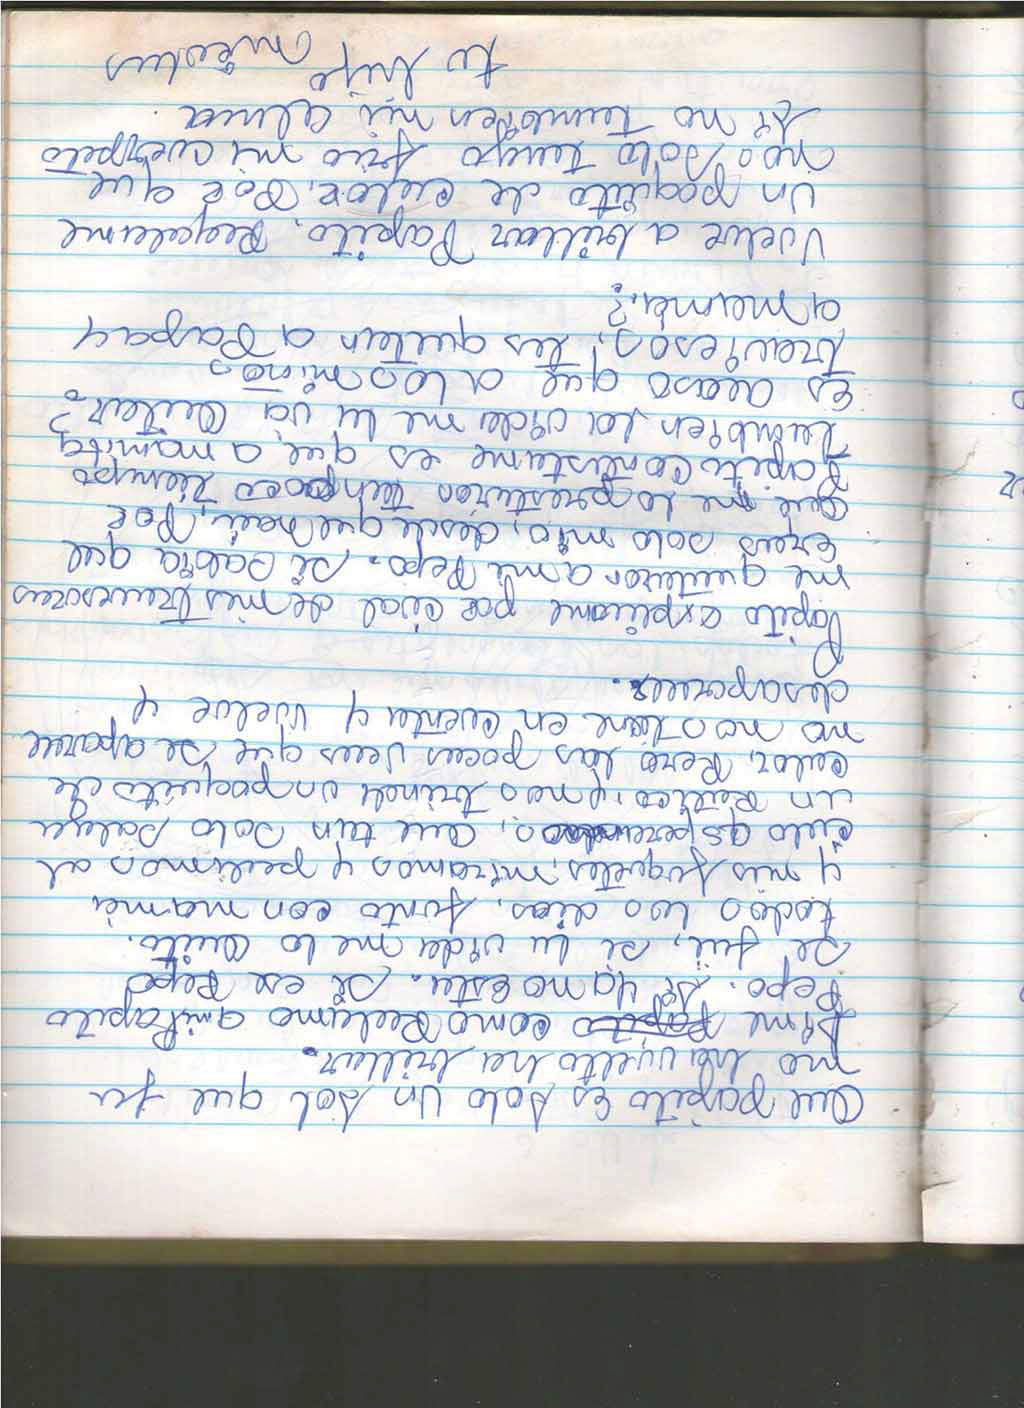 Que papito es solo un sol que ya
no ha vuelto ha brillar.
Dime como Reclamo a mi Papito
Pepo. Si ya no esta. Si ex Pepo
se fué, si la vida me lo Quito.
todos los dias, junto con mamá
y mis juguetes, miramos y pedimos al
cielo, Que tan solo salga
un Ratico, y nos brinde un poquito de
calor, Pero las pocas veces que se aparece
no nos tiene en cuenta y vuelve y
desaparece.
Papito explicame por cual de mis travesuras
me quitaron a mi Pepo. Si sabía que
eras solo mio, desde que nací, Por
Que me lo prestaron tan poco tiempo
Papito Contestame es que a mamita
también la vida me la va Quitar?
Es acaso que a los niños
traviesos, les quitan a Papa y
a mamá.?
Vuelve a brillar Papito, Regalame
un poquito de calor, Por que
no solo tengo frio mi cuerpito
Si no también mi alma.
tu hijo
Nicolas